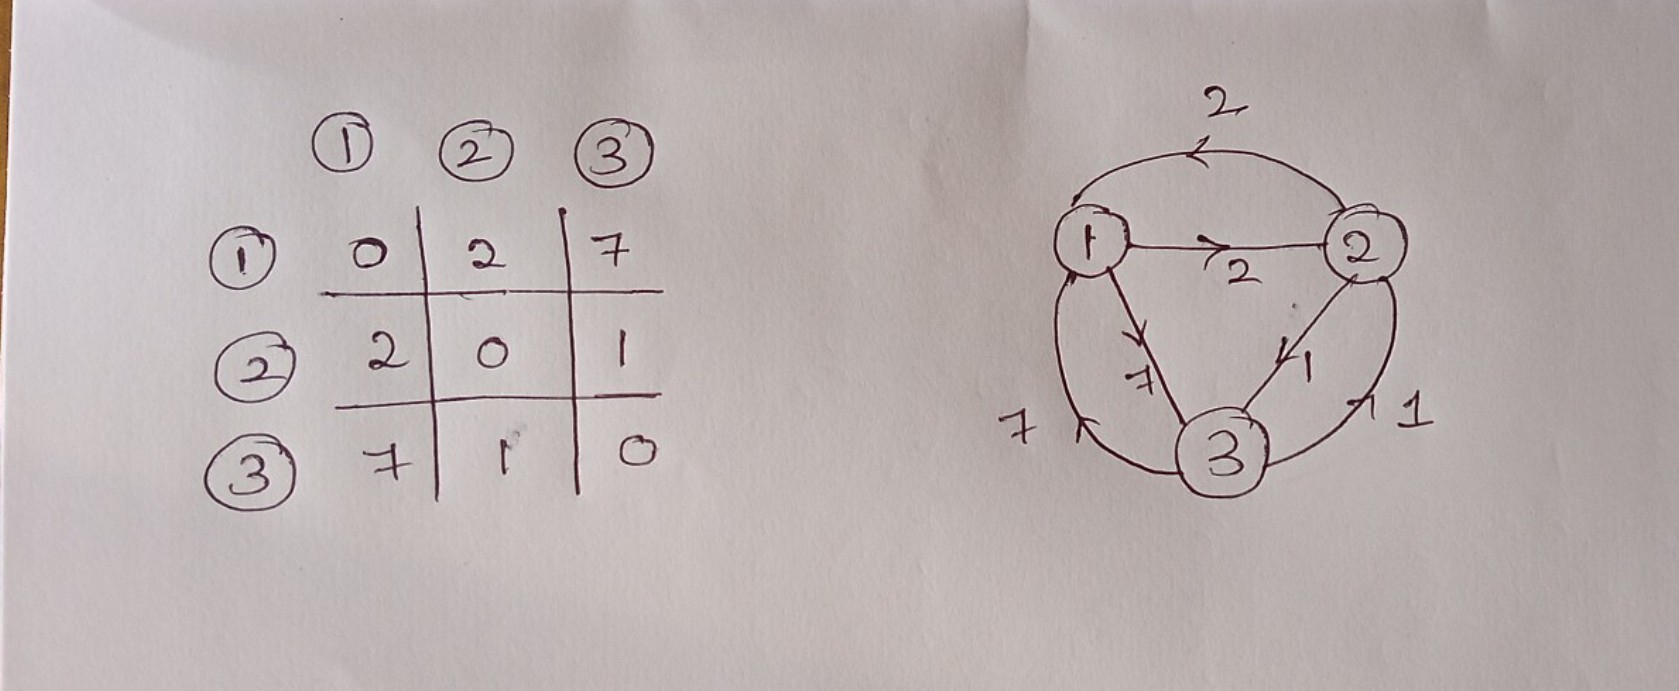 1 2 3
1 0 2 7
2 2 0 1
3 7 1 0
2
1 2 2
7 1
7 3 1